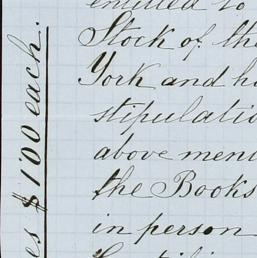 entitled to
Stock of the
York and h
stipulatio
above men
the Books
in person
es $100 each.